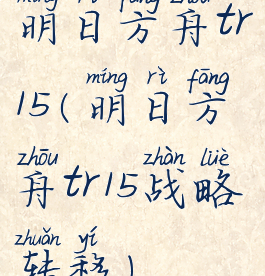 míng rì fāng zhōu
明日方舟tr
míng rì fāng
15(明日方
zhōu zhàn lüè
舟tr15战略
zhuǎn yí
转移)